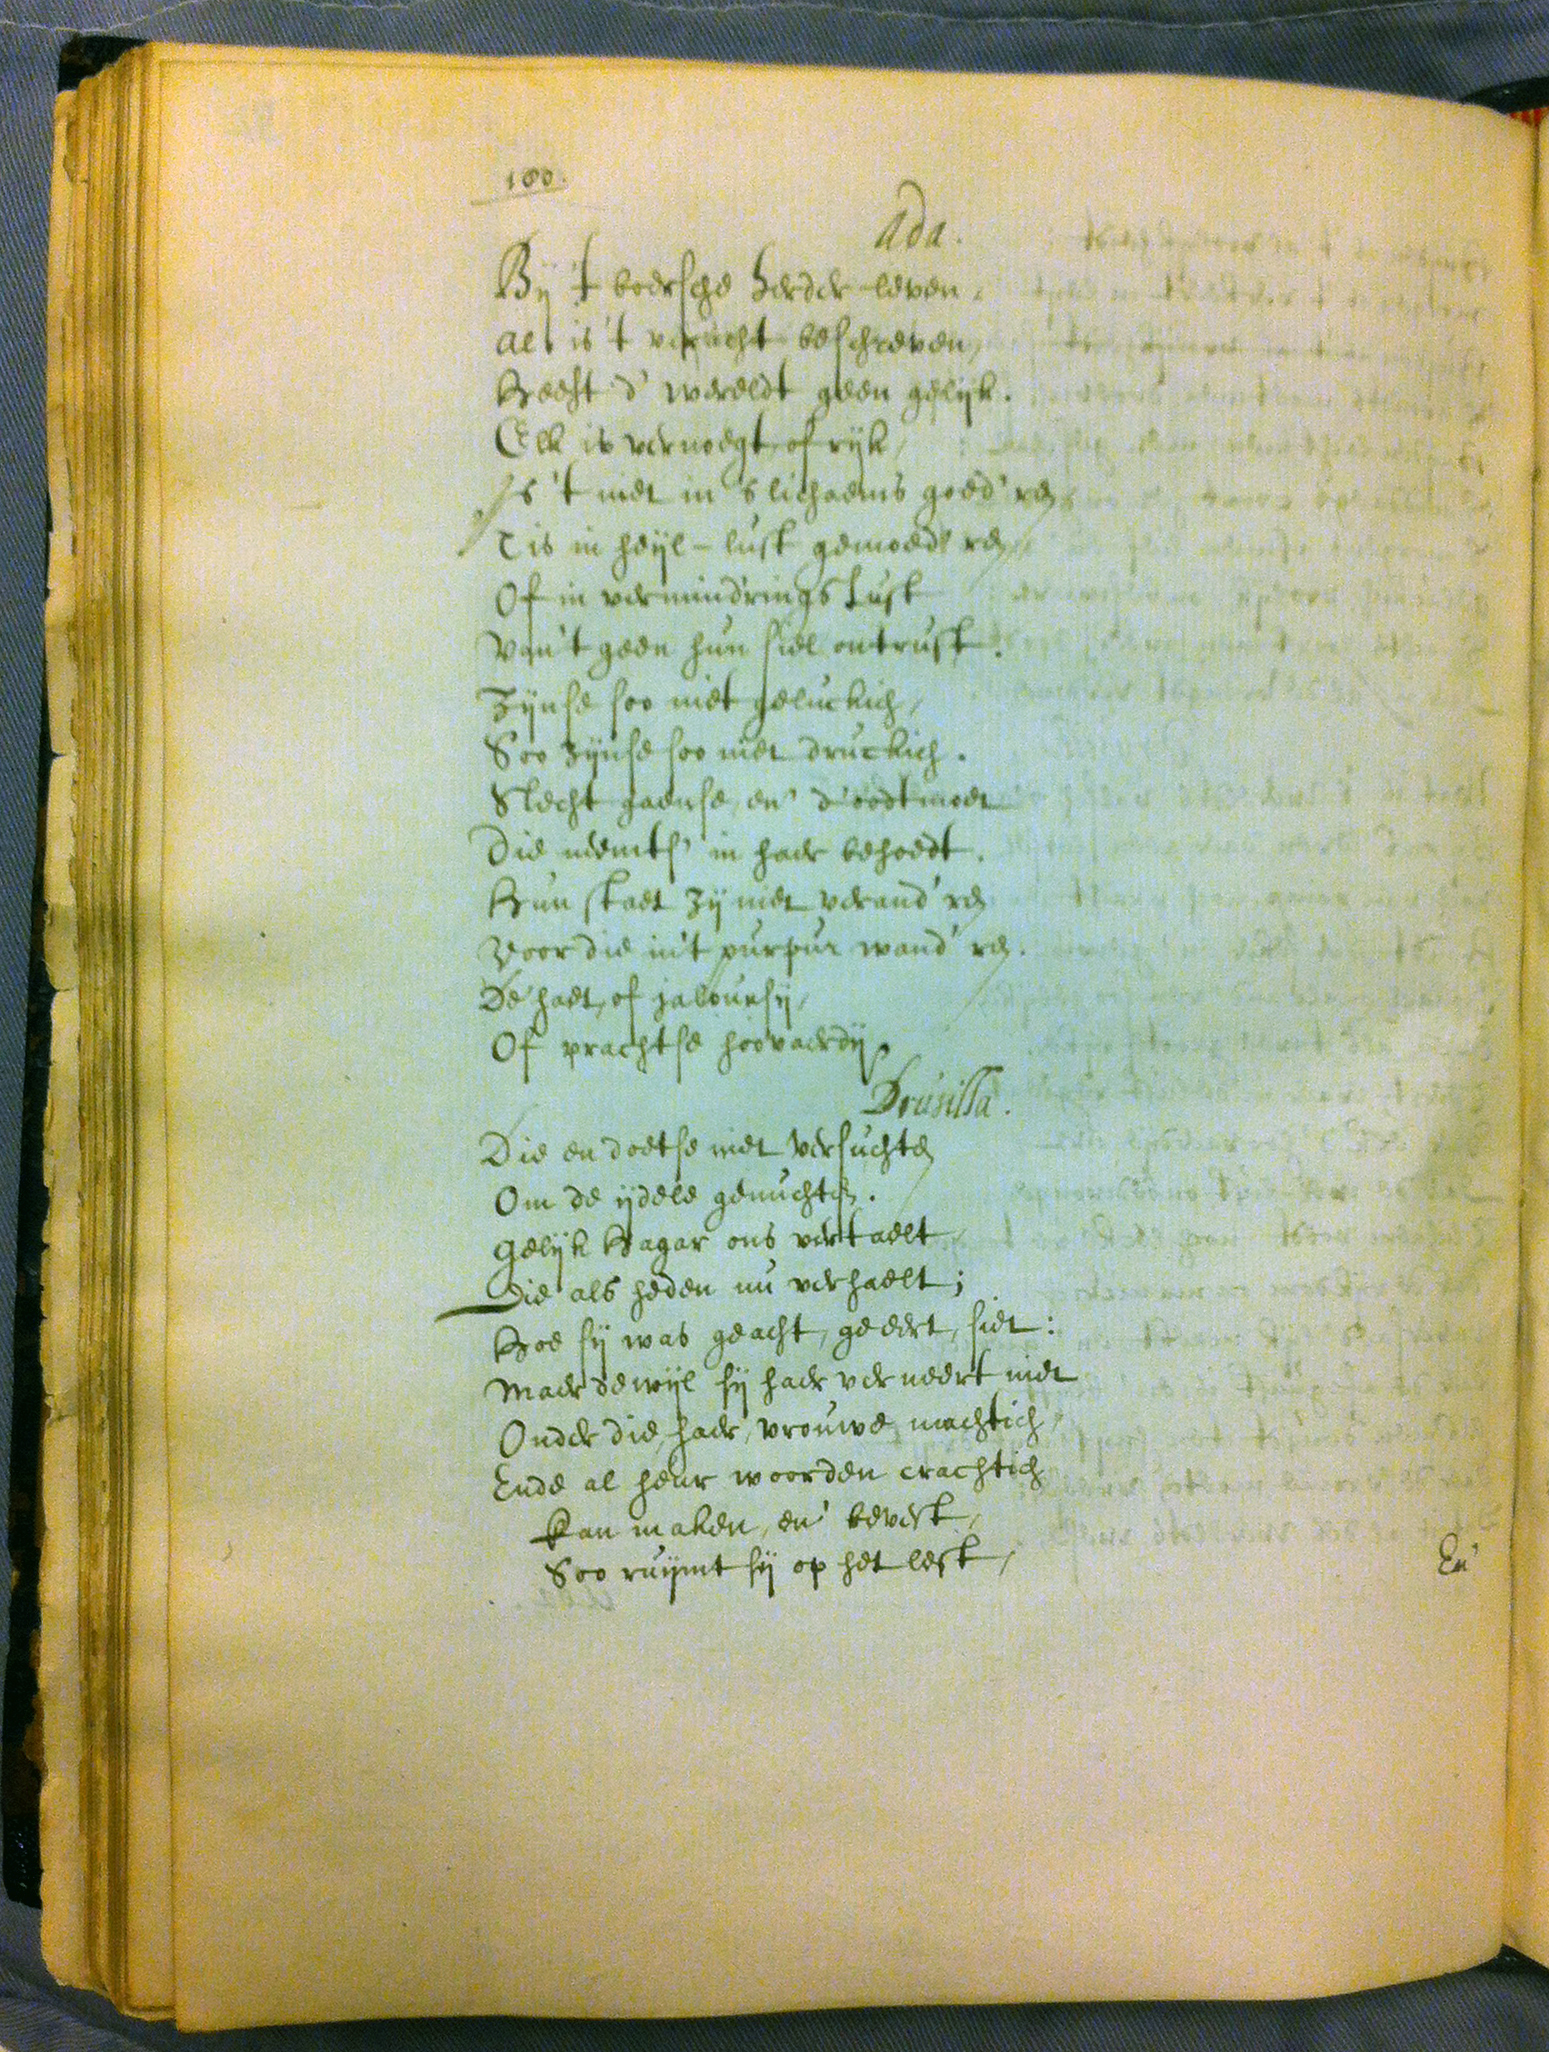 100.
Ada.
By 't boersche herder-leven,
Al is 't veracht beschreven,
Heeft d' wereldt geen gelijk.
Elk is vernoegt, of rijk,
Is 't niet in 's lichaems goed'ren
T is in heyl-lust gemoed'ren
Of in vermindrings lust
Van 't geen hun siel ontrust.
Zijnse soo niet geluckich,
Soo zijnse soo niet druckich.
Slecht gaense, en' d'ootmoet
Die neemts' in haer behoedt.
Hun staet zy niet verand'ren
Voor die in 't purpur wand'ren.
De haet, of jaloursy,
Of prachtse hoovaerdy
Drusilla.
Die en doetse niet versuchten
Om de ydele genuchten.
Gelijk Hagar ons vertaelt,
Die als heden nu verhaelt;
Hoe sy was geacht, geeert, siet:
Maer dewijl sy haer verneert niet
Onder die, haer, vrouwe machtich,
Ende al heur woorden crachtich
Kan maken, en' bevest,
Soo ruymt sy op het lest,
En'